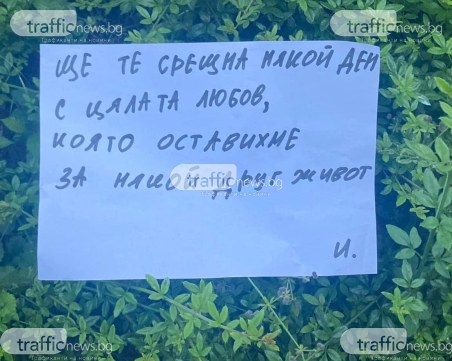 trafficnews.bg
trafficnews.bg
ЩЕ ТЕ СРЕЩНА НЯКОЙ ДЕН
С ЦЯЛАТА ЛЮБОВ,
КОЯТО ОСТАВИХМЕ
ЗА НЯКОЙ ДРУГ ЖИВОТ
trafficnews.bg
И.
trafficnews.bg
trafficnews.bg